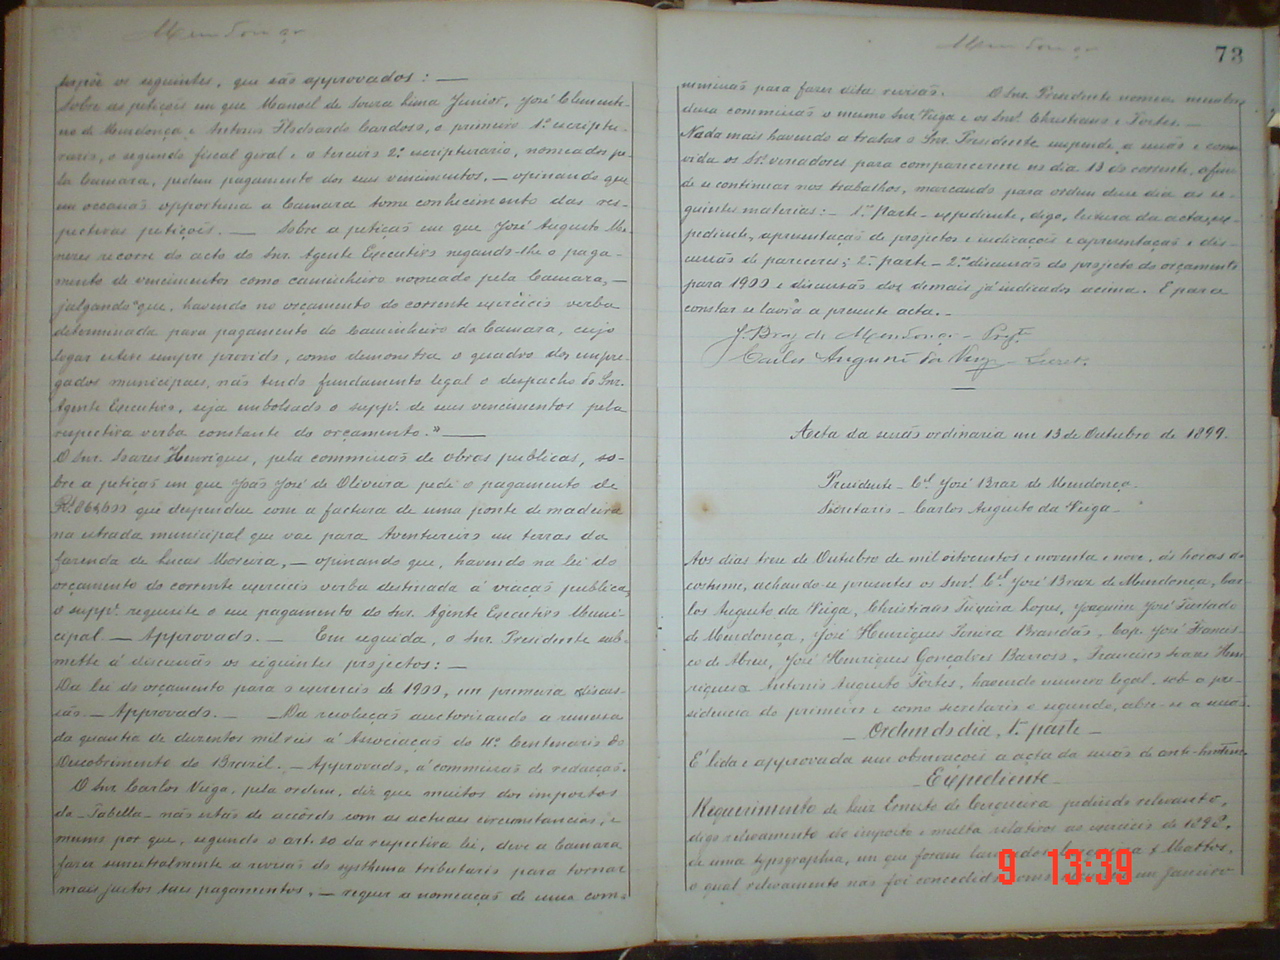 Mendonça
supõe os seguintes, que são approvados: —
Sobre as petições em que Manoel de Souza Lima Junior, José Clementi-
no de Mendonça e Antonio Cardoso, o primeiro 1º escriptu-
rario, o segundo fiscal geral e o terceiro 2º escripturario, nomeados pe-
la Camara, pedem pagamento dos seus vencimentos, — opinando que
em occasião opportuna a Camara tome conhecimento das res-
pectivas petições. — Sobre a petição em que José Augusto Me-
nezes recorre do acto do Snr. Agente Executivo negando-lhe o paga-
mento de vencimentos como caminheiro nomeado pela Camara, —
julgando "que, havendo no orçamento do corrente exercicio verba
determinada para pagamento do Caminheiro da Camara, cujo
logar esteve sempre provido, como demonstra o quadro dos empre-
gados municipaes, não tendo fundamento legal o despacho do Snr.
Agente Executivo, seja embolsado o suppe. de seus vencimentos pela
respectiva verba constante do orçamento." —
O Snr. Soares Henriques, pela commissão de obras publicas, so-
bre a petição em que João José de Oliveira pede o pagamento de
que despendeu com a factura de uma ponte de madeira
na estrada municipal que vae para Aventureiro em terras da
fazenda de Lucas Moreira, — opinando que, havendo na lei do
orçamento do corrente exercicio verba destinada á viação publica,
o suppe. requeira o seu pagamento do Snr. Agente Executivo Muni-
cipal. — Approvado. — Em seguida, o Snr. Presidente sub-
mette á discussão os seguintes projectos: —
Da lei do orçamento para o exercicio de 1900, em primeira discus-
são. — Approvado. — Da resolução auctorizando a remessa
da quantia de duzentos mil reis á Associação do 4º Centenario do
Descobrimento do Brazil. — Approvado, á commissão de redacção.
O Snr. Carlos Veiga, pela ordem, diz que muitos dos impostos
da — Tabella — não estão de accôrdo com as actuaes circunstancias, e
mesmo por que, segundo o art. 50 da respectiva lei, deve a Camara
fazer a revisão do systhema tributario para tornar
mais justos taes pagamentos, — requer a nomeação de uma com-
Mendonça
73
missão para fazer dita revisão. O Snr. Presidente nomea membros
dessa commissão o mesmo Snr. Veiga e os Snrs. Christiano e Fortes. —
Nada mais havendo a tratar o Snr. Presidente suspende a sessão e con-
vida os Srs. vereadores para comparecerem no dia 13 do corrente, afim
de se continuar nos trabalhos, marcando para ordem desse dia as se-
guintes materias: — 1ª Parte — expediente, digo, leitura da acta, ex-
pediente, apresentação de projectos e indicações e apresentação e dis-
cussão de pareceres; 2ª parte — 2ª discussão do projecto do orçamento
para 1900 e discussão dos demais já indicados acima. E para
constar se lavra a presente acta. —
J. Braz de Mendonça — Presdt.
Carlos Augusto da Veiga — Secret.
Acta da sessão ordinaria em 13 de Outubro de 1899.
Presidente — Cel. José Braz de Mendonça.
Secretario — Carlos Augusto da Veiga —
Aos dias treze de Outubro de mil oitocentos e noventa e nove, ás horas do
costume, achando-se presentes os Snrs. Cel. José Braz de Mendonça, Car-
los Augusto da Veiga, Christiano Teixeira Lopes, Joaquim José Furtado
de Mendonça, José Henriques Brandão, Cap. José Francis-
co de Abreu, José Henriques Gonçalves Barroso, Francisco Soares Hen-
riques e Antonio Augusto Fortes, havendo numero legal, sob a pre-
sidencia do primeiro e como secretario o segundo, abre-se a sessão.
— Ordem do dia, 1ª parte —
É lida e approvada sem observações a acta da sessão de ante-hontem.
— Expediente —
Requerimento de Luiz Ernesto de Cerqueira pedindo relevanto,
digo relevamento do imposto e multa relativos ao exercicio de 1898,
de uma typographia, em que foram lançados Cerqueira & Mattos,
o qual relevamento não foi concedido em Janeiro
9 13:39